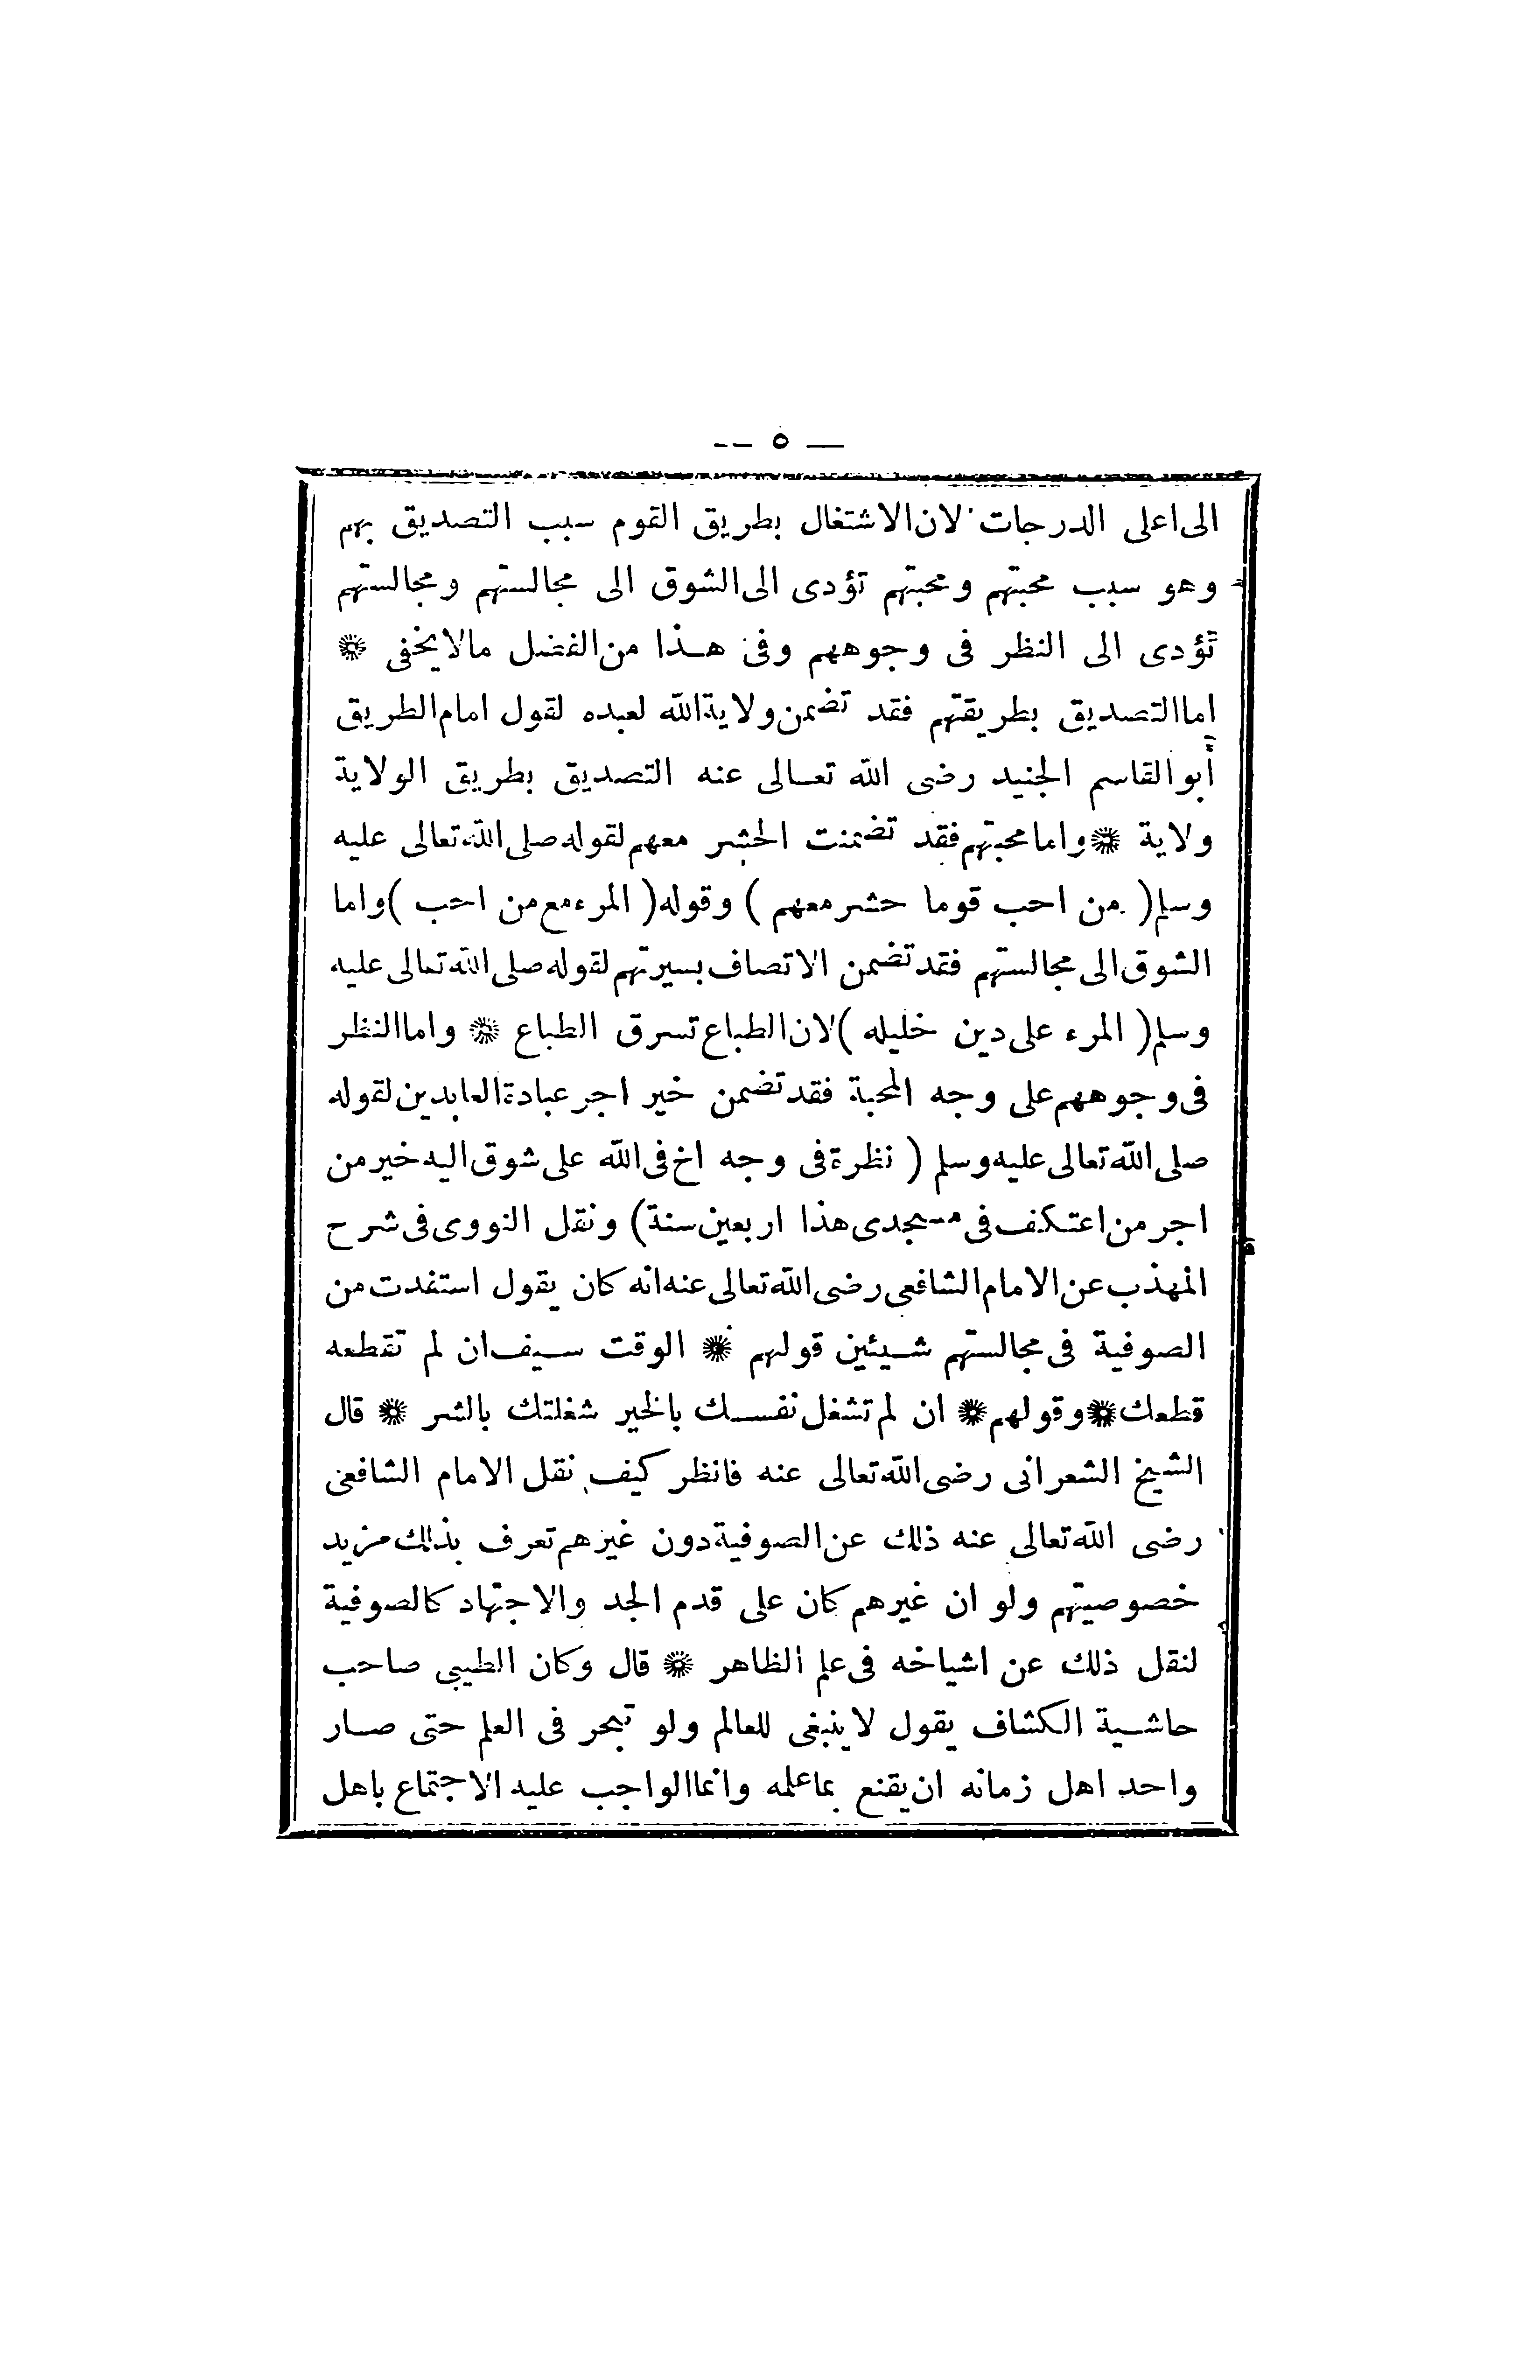 — ٥ —
الى اعلى الدرجات لان الاشتغال بطريق القوم سبب التصديق بهم
وهو سبب محبتهم ومحبتهم تؤدى الى الشوق الى مجالستهم ومجالستهم
تؤدى الى النظر فى وجوههم وفى هـذا من الفضل مالايخفى ❋
اما التصديق بطريقتهم فقد تضمن ولاية الله لعبده لقول امام الطريق
أبو القاسم الجنيد رضى الله تعـالى عنه التصديق بطريق الولاية
ولاية ❋ واما محبتهم فقد تضمنت الحشر معهم لقوله صلى الله تعالى عليه
وسلم ( من احب قوما حشر معهم ) وقوله ( المرء مع من احب ) واما
الشوق الى مجالستهم فقد تضمن الاتصاف بسيرتهم لقوله صلى الله تعالى عليه
وسلم ( المرء على دين خليله ) لان الطباع تسرق الطباع ❋ واما النظر
فى وجوههم على وجه المحبة فقد تضمن خير اجر عبادة العابدين لقوله
صلى الله تعالى عليه وسلم ( نظرة فى وجه اخ فى الله على شوق اليه خير من
اجر من اعتكف فى مسجدى هذا اربعين سنة ) ونقل النووى فى شرح
المهذب عن الامام الشافعى رضى الله تعالى عنه انه كان يقول استفدت من
الصوفية فى مجالستهم شـيئين قولهم ❋ الوقت سـيف ان لم تقطعه
قطعك ❋ وقولهم ❋ ان لم تشغل نفسـك بالخير شغلتك بالشر ❋ قال
الشيخ الشعرانى رضى الله تعالى عنه فانظر كيف نقل الامام الشافعى
رضى الله تعالى عنه ذلك عن الصوفية دون غيرهم تعرف بذلك مزيد
خصوصيتهم ولو ان غيرهم كان على قدم الجد والاجتهاد كالصوفية
لنقل ذلك عن اشياخه فى علم الظاهر ❋ قال وكان الطيبى صاحب
حاشـية الكشاف يقول لاينبغى للعالم ولو تبحر فى العلم حتى صـار
واحد اهل زمانه ان يقنع بما علمه وانما الواجب عليه الاجتماع باهل